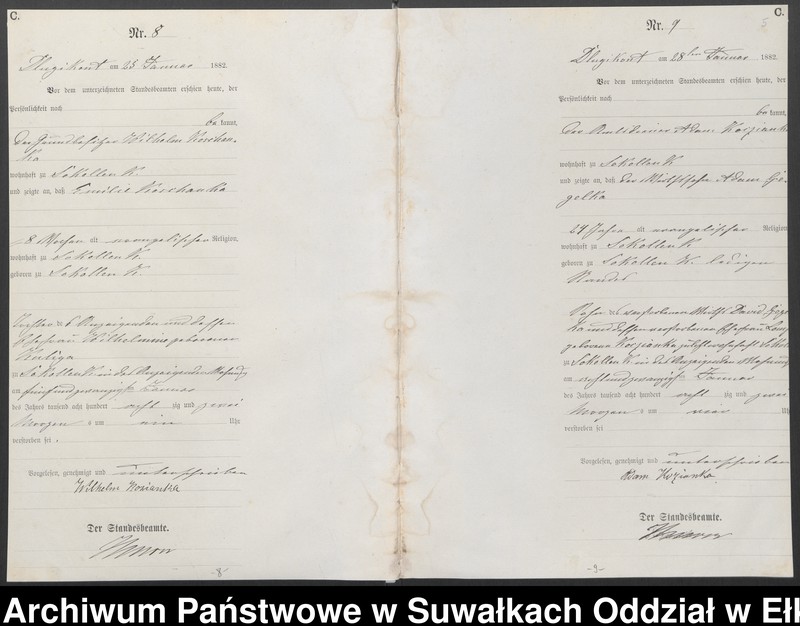 C.
Nr. 8
Dlugikont am 25 Januar 1882.
Vor dem unterzeichneten Standesbeamten erschien heute, der
Persönlichkeit nach
bekannt,
der Grundbesitzer Wilhelm Koschan-
ka
wohnhaft zu Sokollen K.
und zeigte an, daß Emilie Koschanka
8 Wochen alt evangelischer Religion,
wohnhaft zu Sokollen K.
geboren zu Sokollen K.
Tochter des Anzeigenden und dessen
Ehefrau Wilhelmine geborenen
zu Sokollen K in des Anzeigenden Wohnung
am fünfundzwanzigsten Januar
des Jahrs tausend acht hundert achtzig und zwei
Morgens um ein Uhr
verstorben sei.
Vorgelesen, genehmigt und unterschrieben
Wilhelm Kosianka
Der Standesbeamte.
-8-
C.
5
Nr. 9
Dlugikont am 28ten Januar 1882.
Vor dem unterzeichneten Standesbeamten erschien heute, der
Persönlichkeit nach
bekannt,
der Adam
wohnhaft zu Sokollen K
und zeigte an, daß der Adam
24 Jahre alt evangelischer Religion
wohnhaft zu Sokollen K.
geboren zu Sokollen K. ledigen
Standes
Sohn des verstorbenen Wirths David
und dessen verstorbenen Ehefrau
geborene
zu Sokollen K. in des Anzeigenden Wohnung
am achtundzwanzigsten Januar
des Jahrs tausend acht hundert achtzig und zwei
Morgens um vier Uhr
verstorben sei
Vorgelesen, genehmigt und unterschrieben
Adam Kozianka
Der Standesbeamte.
-9-
Archiwum Państwowe w Suwałkach Oddział w Ełk